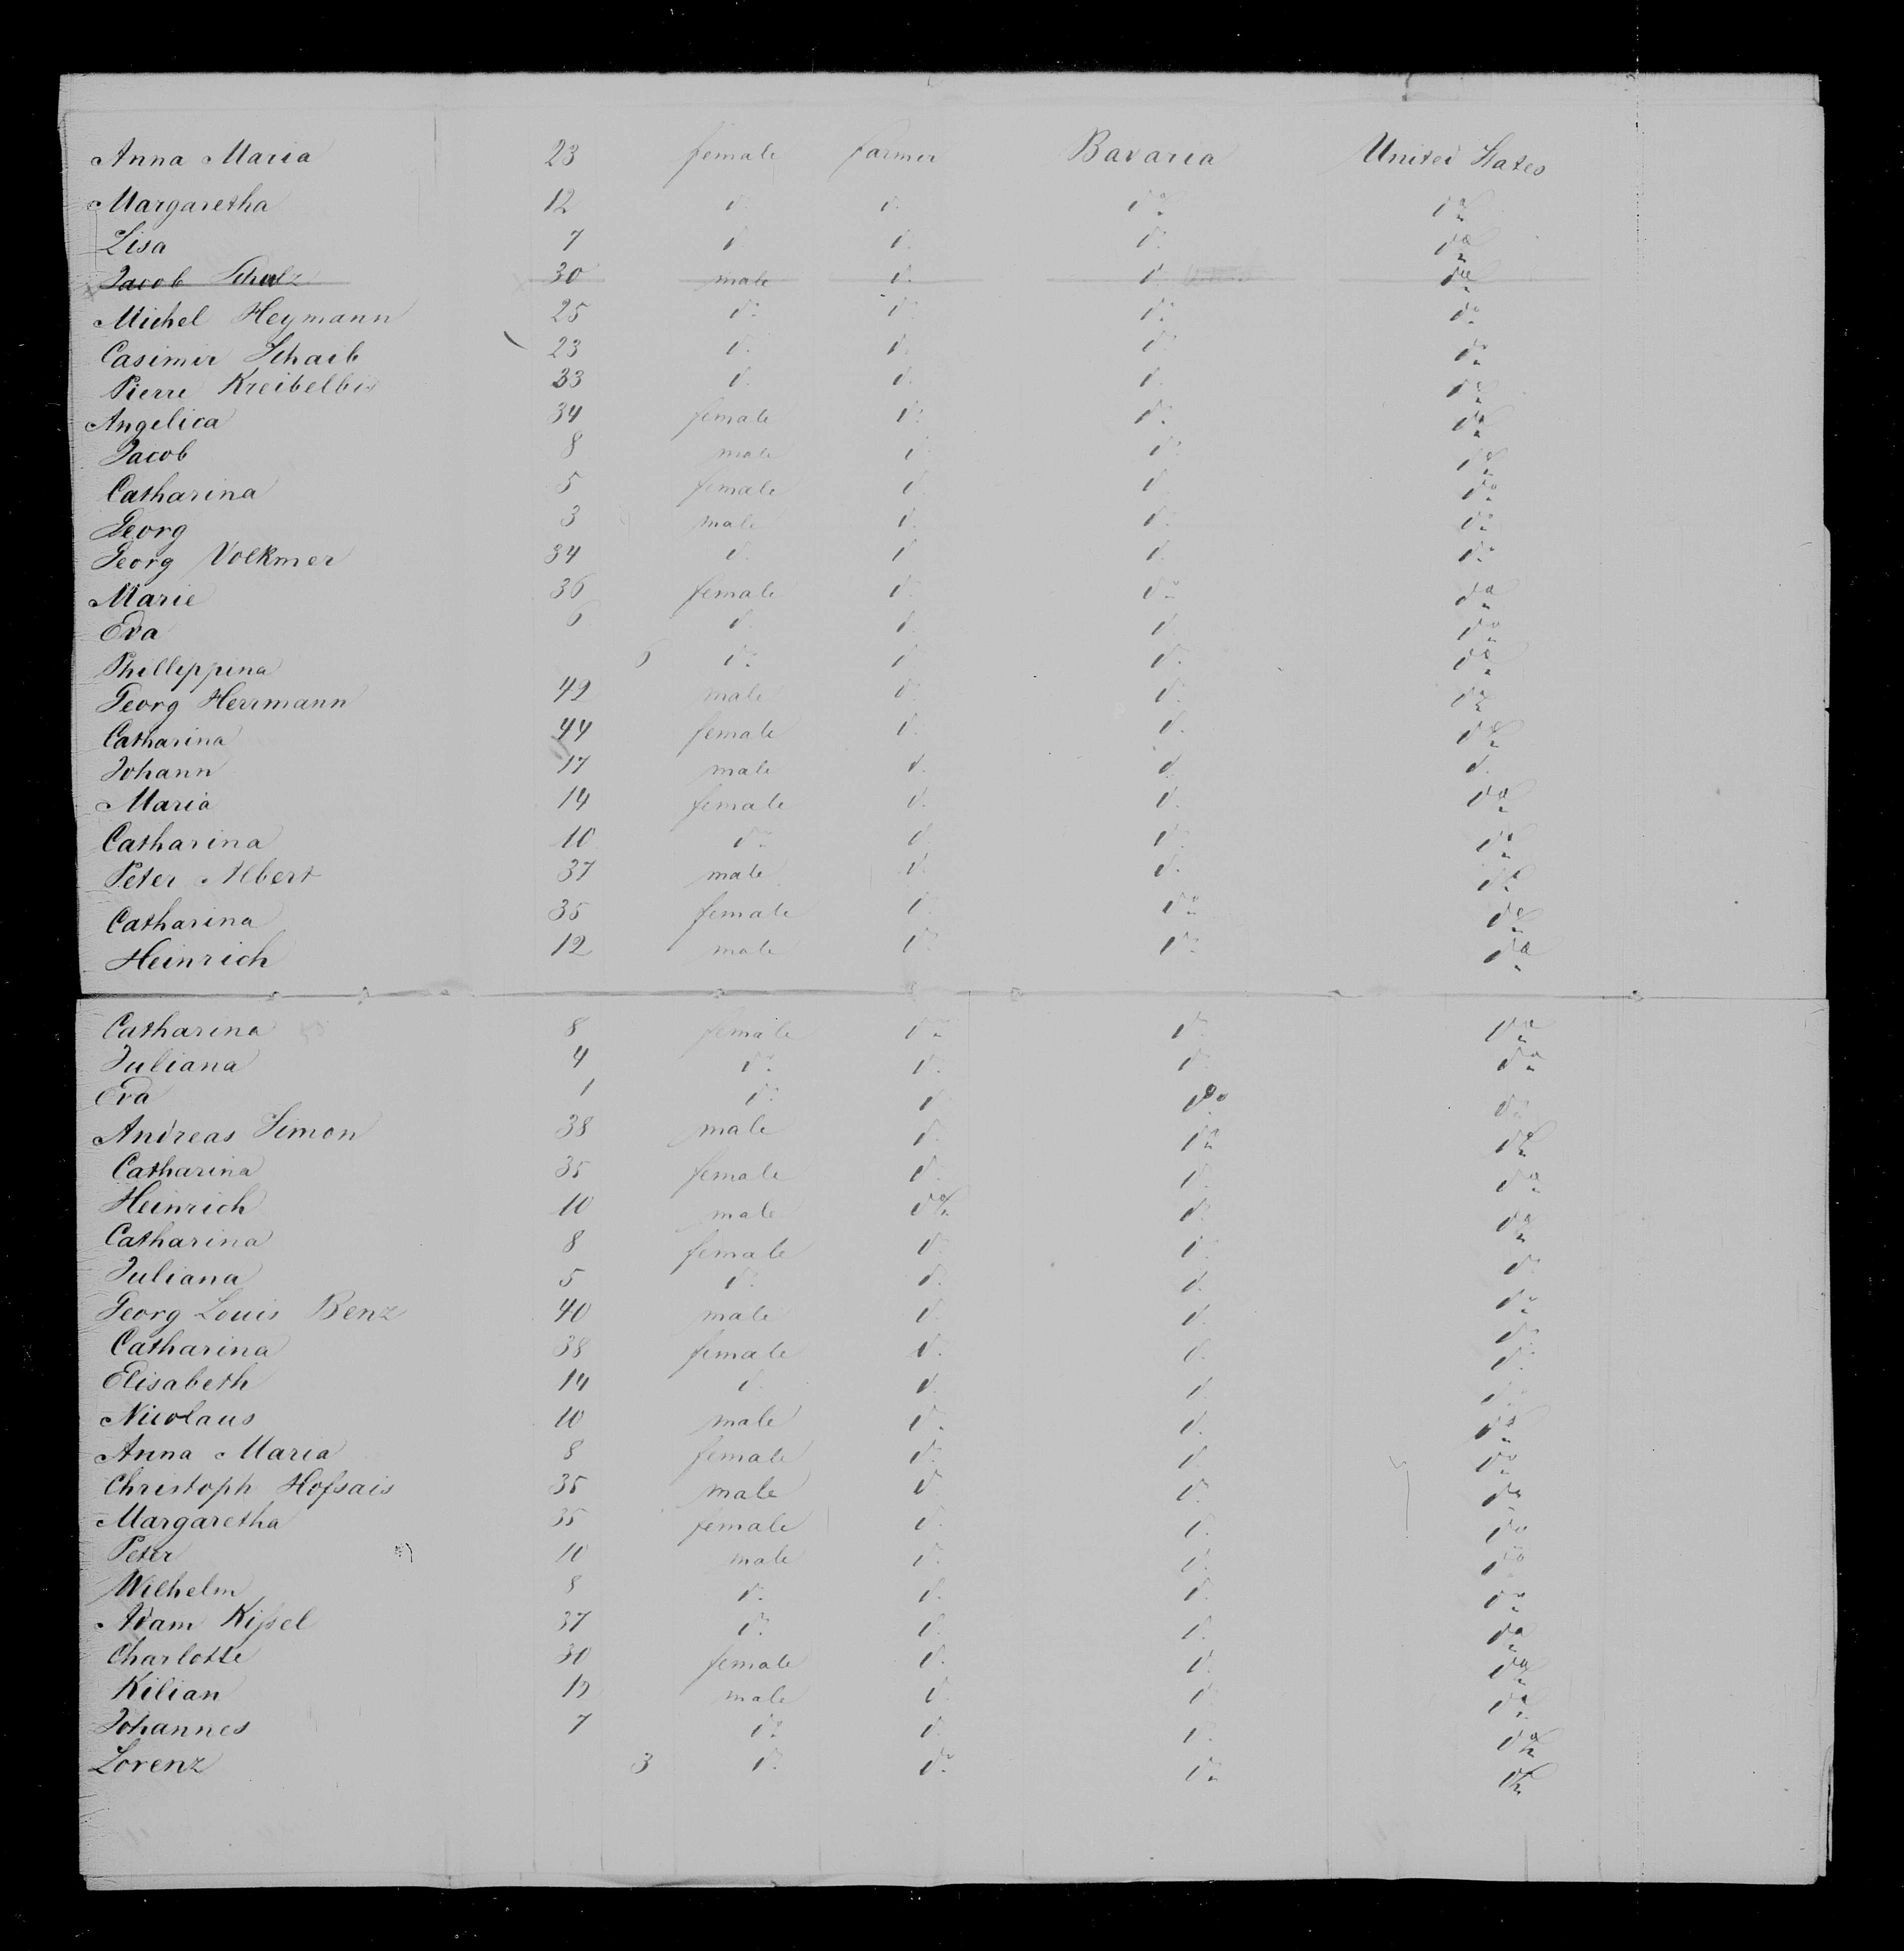 Anna Maria 23 female farmer Bavaria United States
Margaretha 12 d. d. do do
Lisa 7 d. d. do do
Jacob Schulz 30 male d. d. do
Michel Heymann 25 do do do do
Casimir Schaib 23 d. d. d. do
Pierre Kreibelbis 33 d. d. d. do
Angelica 34 female do do do
Jacob 8 male d. do do
Catharina 5 female d. d. do
Georg 3 male d. d. do
Georg Volkmer 34 d. d. d. do
Marie 36 female do do do
Eva 6 d. d. d. do
Philleppina 6 do d. d. do
Georg Herrmann 49 male do d. do
Catharina 44 female d. d. do
Johann 17 male d. d. d.
Maria 14 female d. d. do
Catharina 10 do d. d. do
Peter Albert 37 male d. d. do
Catharina 35 female d. do do
Heinrich 12 male do do do
Catharina 8 female do do do
Juliana 4 do do do do
Eva 1 do d. do do
Andreas Simon 38 male d. do do
Catharina 35 female d. d. do
Heinrich 10 male do d. do
Catharina 8 female d. d. do
Juliana 5 d. d. d. d.
Georg Louis Benz 40 male d. d. do
Catharina 38 female d. d. do
Elisabeth 14 d. d. d. do
Nicolaus 10 male do d. do
Anna Maria 8 female do d. do
Christoph Hofsais 35 male d. d. do
Margaretha 35 female d. d. do
Peter 10 male d. d. do
Wilhelm 8 d. d. d. do
Adam Kissel 37 do d. d. do
Charlotte 30 female d. d. do
Kilian male d. d. do
Johannes 7 do d. d. do
Lorenz 3 d. do do do